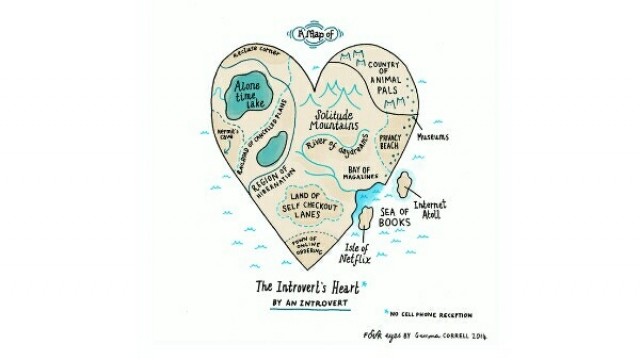 A Map of
Recluse corner
Alone
time
Lake
HERMIT'S
CAVE
RAILROAD OF CANCELLED PLANS
REGION OF
HIBERNATION
COUNTRY
OF
ANIMAL
PALS
Solitude
Mountains
River of daydreams
PRIVACY
BEACH
Museums
BAY OF
MAGAZINES
LAND OF
SELF CHECKOUT
LANES
TOWN OF
ONLINE
ORDERING
SEA OF
BOOKS
Internet
Atoll
Isle of
Netflix
The Introvert's Heart*
BY AN INTROVERT
*NO CELL PHONE RECEPTION
FOUR eyes BY Gemma CORRELL 2014